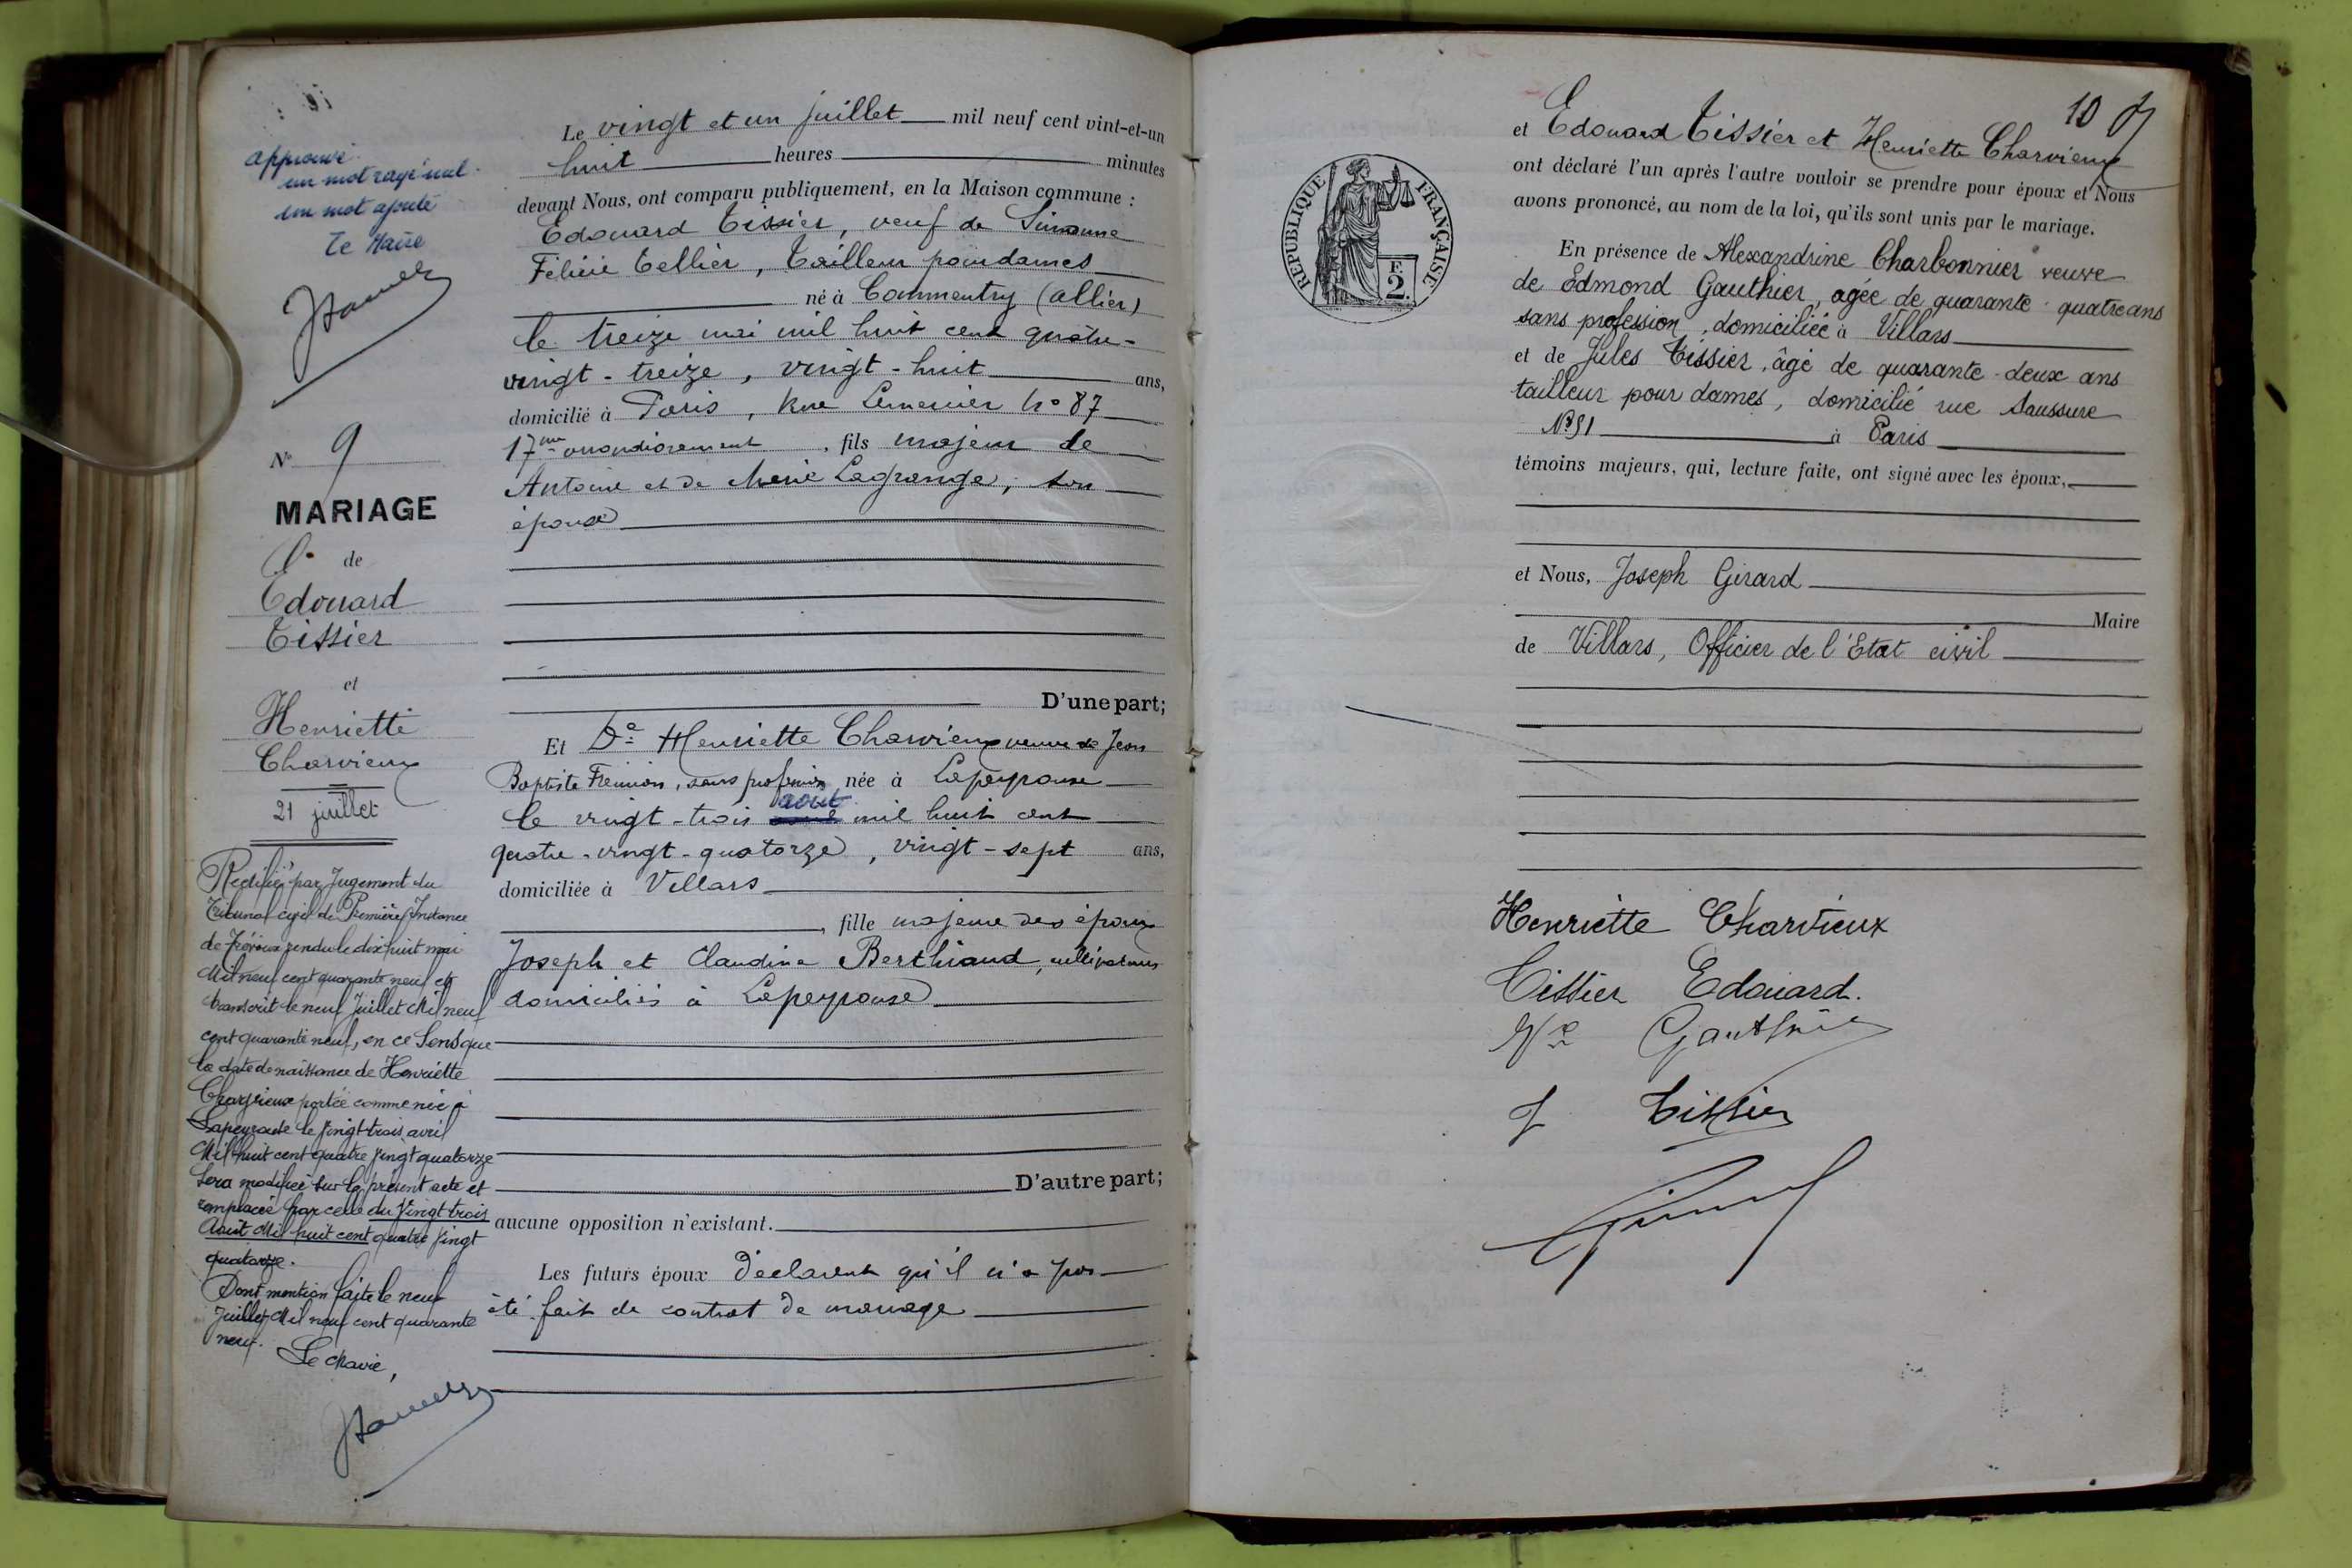 approuvé
un mot rayé nul
un mot ajouté
Le Maire
N° 9
MARIAGE
de
Edouard
Tissier
et
Henriette
Charvieux
21 juillet
Rectifié par Jugement du
Tribunal civil de Première Instance
de Trévoux rendu le dix huit mai
Mil neuf cent quarante neuf et
transcrit le neuf Juillet Mil neuf
cent quarante neuf, en ce Sens que
la date de naissance de Henriette
Charvieux portée comme née à
Lapeyrouse le vingt-trois avril
Mil huit cent quatre vingt quatorze
Sera modifiée sur le présent acte et
remplacée par celle du Vingt trois
Aout Mil huit cent quatre vingt
quatorze.
Dont mention faite le neuf
Juillet Mil neuf cent quarante
neuf.
Le Maire,
Le vingt et un juillet mil neuf cent vint-et-un
huit heures minutes
devant Nous, ont comparu publiquement, en la Maison commune :
Edouard Tissier, veuf de Simonne
Félicie Tellier, Tailleur pour dames
né à Commentry (Allier)
le treize mai mil huit cent quatre-
vingt-treize, vingt-huit ans,
domicilié à Paris, Rue Lemercier N° 87
17me arrondissement, fils majeur de
Antoine et de Marie Lagrange, son
épouse
D'une part;
Et De Henriette Charvieux veuve de Jean
Baptiste, sans profession née à Lapeyrouse
aout
le vingt-trois mil huit cent
quatre-vingt-quatorze, vingt-sept ans,
domiciliée à Villars
, fille majeure des époux
Joseph et Claudine Berthiaud, cultivateurs
domiciliés à Lapeyrouse
D'autre part;
aucune opposition n'existant.
Les futurs époux déclarent qu'il n'a pas
été fait de contrat de mariage
10
RÉPUBLIQUE FRANÇAISE
F.
2.
et Edouard Tissier et Henriette Charvieux
ont déclaré l'un après l'autre vouloir se prendre pour époux et Nous
avons prononcé, au nom de la loi, qu'ils sont unis par le mariage.
En présence de Alexandrine Charbonnier veuve
de Edmond Gauthier, agée de quarante-quatre ans
sans profession, domiciliée à Villars
et de Jules Tissier, âgé de quarante-deux ans
tailleur pour dames, domicilié rue Saussure
N° 91 à Paris
témoins majeurs, qui, lecture faite, ont signé avec les époux,
et Nous, Joseph Girard
Maire
de Villars, Officier de l'Etat civil
Henriette Charvieux
Tissier Edouard.
Ve Gauthier
J Tissier